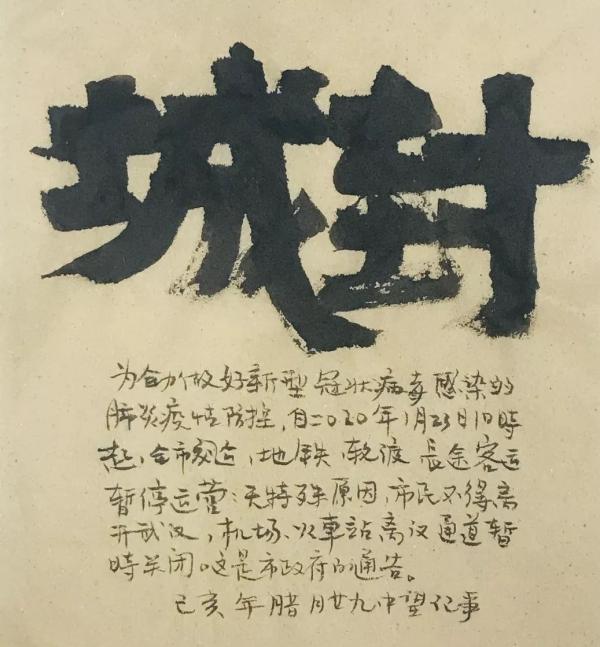 封城
为全力做好新型冠状病毒感染的
肺炎疫情防控，自二020年1月23日10時
起，全市公交，地铁，轮渡，長途客运
暂停运营；无特殊原因，市民不得离
开武汉，机场、火車站离汉通道暂
時关闭。这是市政府的通告。
己亥年腊月廿九中望记事